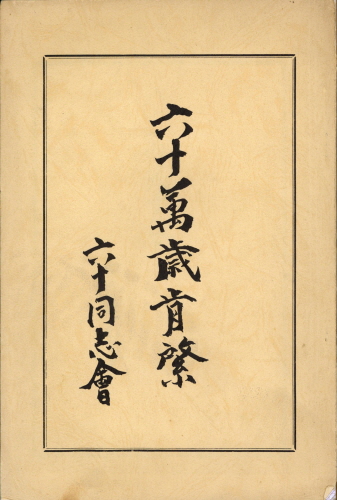 六十萬歳肯綮
六十同志會